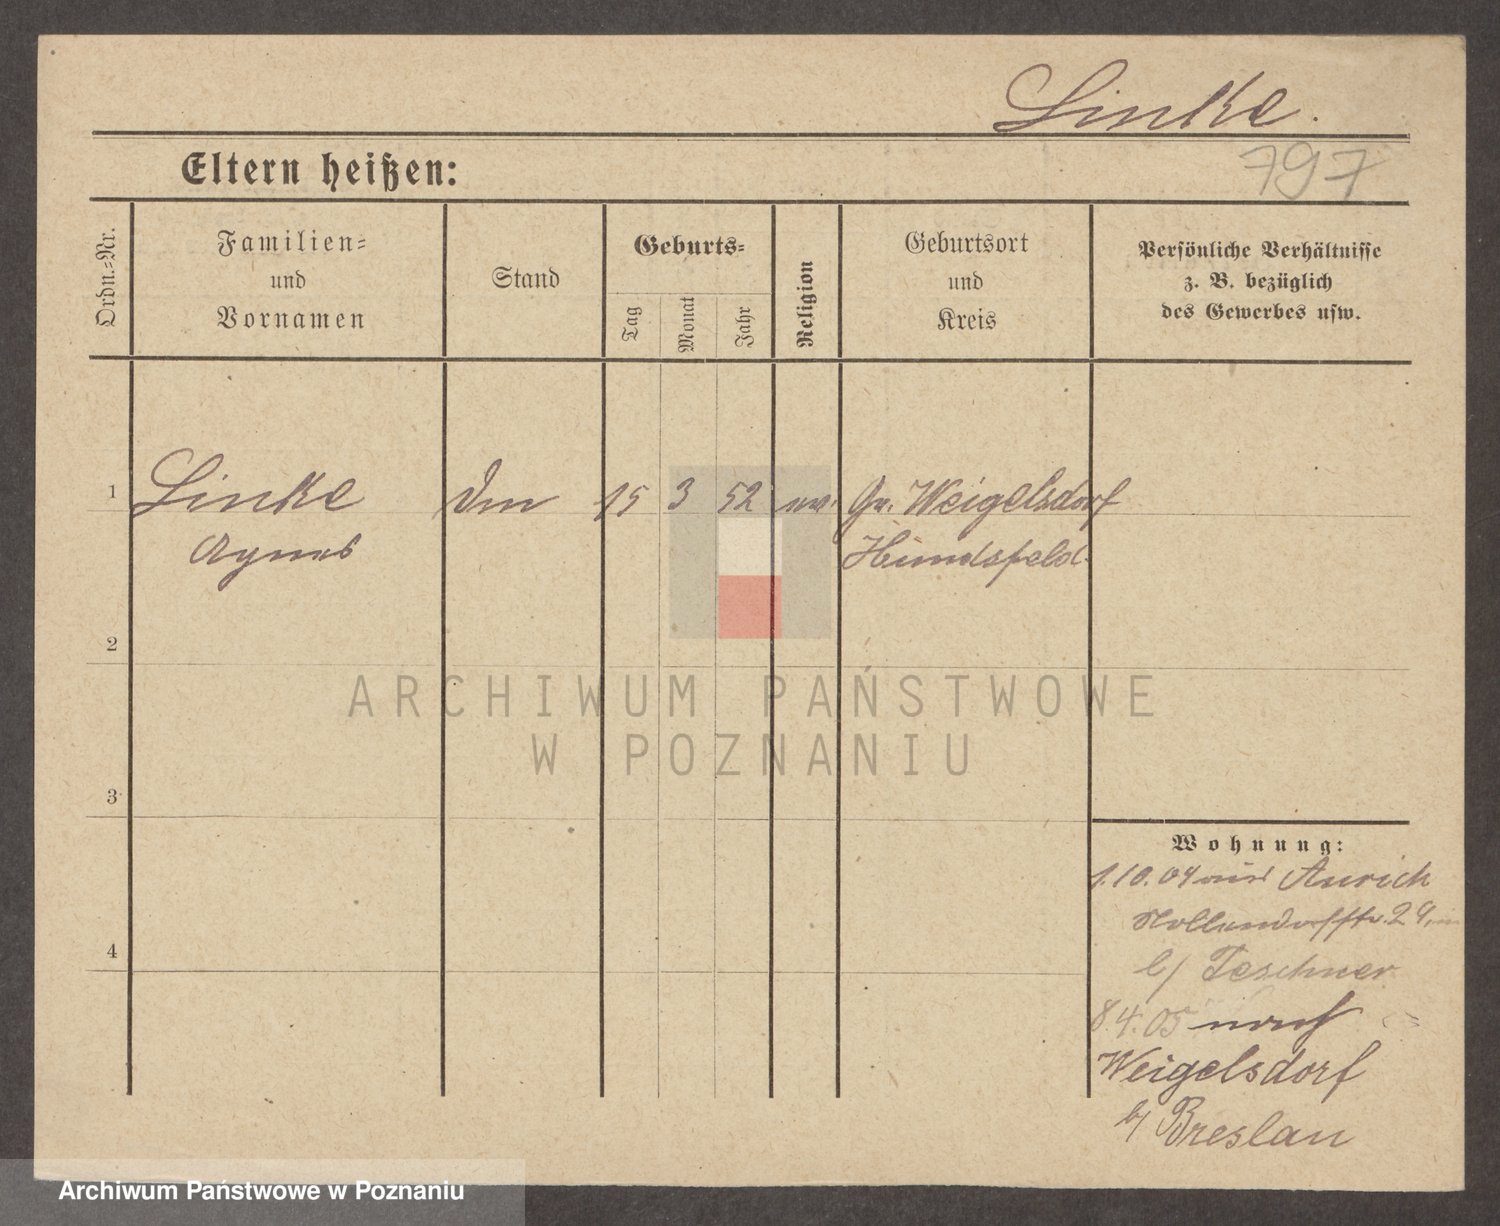 Linke.
797
Eltern heißen:
Ordn.-Nr.
Familien-
und
Vornamen
Stand
Geburts-
Tag
Monat
Jahr
Religion
Geburtsort
und
Kreis
Persönliche Verhältnisse
z. B. bezüglich
des Gewerbes usw.
1 Linke 15 3 52 Gr. Weigelsdorf
Agnes Hundsfeld
2
3
4
ARCHIWUM PAŃSTWOWE
W POZNANIU
Wohnung:
1.10.04 aus Aurich
29
b/ Teschner
8.4.05 nach
Weigelsdorf
b/ Breslau
Archiwum Państwowe w Poznaniu